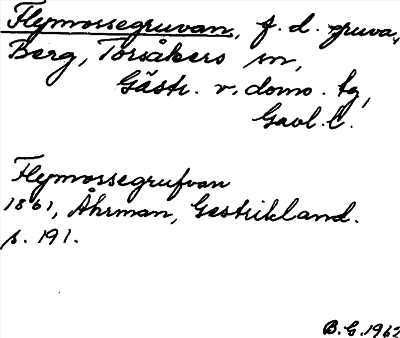 Flymossegruvan, f. d. gruva,
Berg, Torsåkers sn,
Gästr. v. doms. tg,
Gävl. l.
Flymossegrufvan
1861, Åhrman, Gestrikland.
s. 191.
B.G. 1962